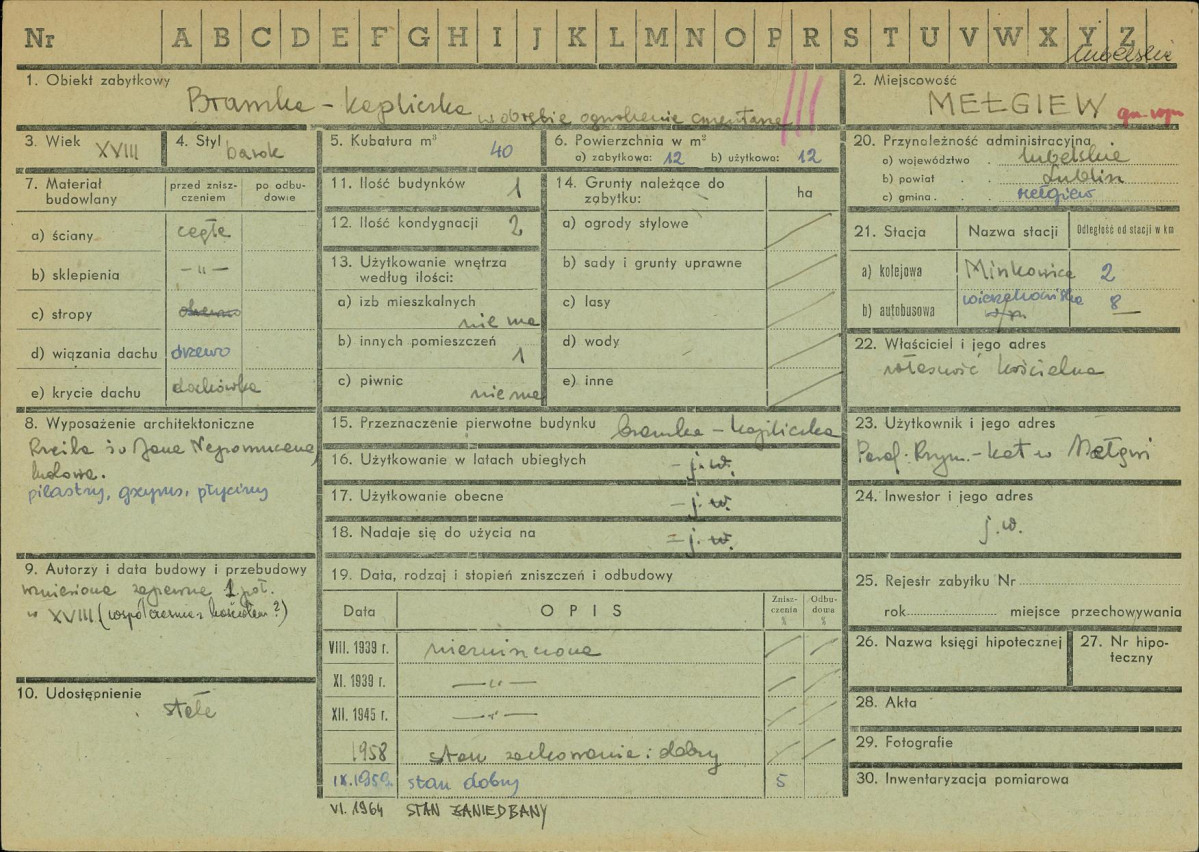 Nr A B C D E F G H I J K L M N O P R S T U V W X Y Z
lubelskie
1. Obiekt zabytkowy
Bramka - kapliczka w obrębie ogrodzenia cmentarza
2. Miejscowość
MEŁGIEW
3. Wiek XVIII
4. Styl barok
5. Kubatura m³ 40
6. Powierzchnia w m²
a) zabytkowa: 12 b) użytkowa: 12
20. Przynależność administracyjna
a) województwo lubelskie
b) powiat Lublin
c) gmina Mełgiew
7. Materiał budowlany
przed znisz-
czeniem
po odbu-
dowie
a) ściany cegła
b) sklepienia -"-
c) stropy
d) wiązania dachu drzewo
e) krycie dachu dachówka
11. Ilość budynków 1
12. Ilość kondygnacji 2
13. Użytkowanie wnętrza
według ilości:
a) izb mieszkalnych
nie ma
b) innych pomieszczeń
1
c) piwnic nie ma
14. Grunty należące do
zabytku:
ha
a) ogrody stylowe
b) sady i grunty uprawne
c) lasy
d) wody
e) inne
21. Stacja Nazwa stacji Odległość od stacji w km
a) kolejowa Minkowice 2
b) autobusowa 8
22. Właściciel i jego adres
własność kościelna
8. Wyposażenie architektoniczne
Rzeźba św Jana Nepomucena,
ludowa.
pilastry, gzyms, płyciny
15. Przeznaczenie pierwotne budynku bramka - kapliczka
16. Użytkowanie w latach ubiegłych - j. w.
17. Użytkowanie obecne - j. w.
18. Nadaje się do użycia na = j. w.
23. Użytkownik i jego adres
Paraf. Rzym.-kat w Mełgwi
24. Inwestor i jego adres
j. w.
9. Autorzy i data budowy i przebudowy
wzniesiona zapewne 1 poł.
w XVIII (współcześnie z kościołem?)
10. Udostępnienie
stałe
19. Data, rodzaj i stopień zniszczeń i odbudowy
Data O P I S
Znisz-
czenia
%
Odbu-
dowa
%
VIII. 1939 r. niezniszczona
XI. 1939 r. -"-
XII. 1945 r. -"-
1958 stan zachowania: dobry
IX. 1959. stan dobry 5
VI. 1964 STAN ZANIEDBANY
25. Rejestr zabytku Nr
rok miejsce przechowywania
26. Nazwa księgi hipotecznej
27. Nr hipo-
teczny
28. Akta
29. Fotografie
30. Inwentaryzacja pomiarowa